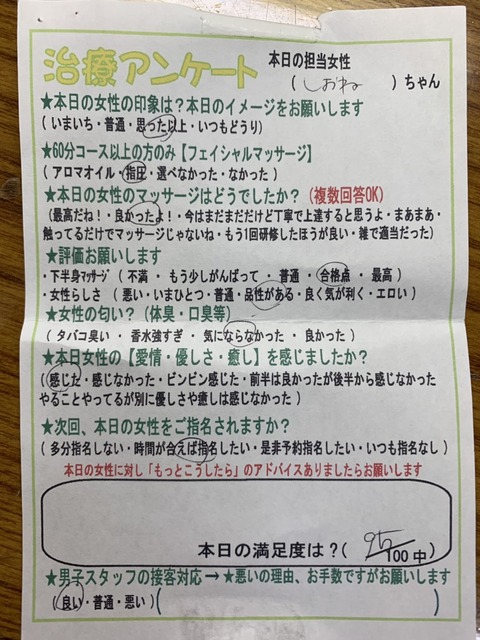 治療アンケート
本日の担当女性
(しおね)ちゃん
★本日の女性の印象は?本日のイメージをお願いします
(いまいち・普通・思った以上・いつもどうり)
★60分コース以上の方のみ【フェイシャルマッサージ】
(アロマオイル・指圧・選べなかった・なかった)
★本日の女性のマッサージはどうでしたか?(複数回答OK)
(最高だね!・良かったよ!・今はまだまだだけど丁寧で上達すると思うよ・まあまあ・
触ってるだけでマッサージじゃないね・もう1回研修したほうが良い・雑で適当だった)
★評価お願いします
・下半身マッサージ(不満・もう少しがんばって・普通・合格点・最高)
・女性らしさ(悪い・いまひとつ・普通・品性がある・良く気が利く・エロい)
★女性の匂い?(体臭・口臭等)
(タバコ臭い・香水強すぎ・気にならなかった・良かった)
★本日女性の【愛情・優しさ・癒し】を感じましたか?
(感じた・感じなかった・ビンビン感じた・前半は良かったが後半から感じなかった
やることやってるが別に優しさや癒しは感じなかった)
★次回、本日の女性をご指名されますか?
(多分指名しない・時間が合えば指名したい・是非予約指名したい・いつも指名なし)
本日の女性に対し「もっとこうしたら」のアドバイスありましたらお願いします
本日の満足度は?(95/100中)
★男子スタッフの接客対応→★悪いの理由、お手数ですがお願いします
(良い・普通・悪い)( )